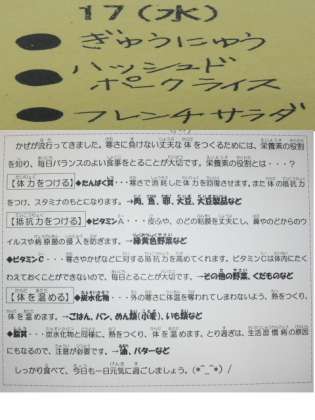 17(水)
ぎゅうにゅう
ハッシュド
ポークライス
フレンチサラダ
かぜが流行ってきました。寒さに負けない丈夫な体をつくるためには、栄養素の役割
を知り、毎日バランスのよい食事をとることが大切です。栄養素の役割とは・・・?
【体力をつける】◆たんぱく質・・・寒さで消耗した体力を回復させます。また体の抵抗力
をつけ、スタミナのもとになります。→肉、魚、卵、大豆、大豆製品など
【抵抗力をつける】◆ビタミンA・・・皮ふや、のどの粘膜を丈夫にし、鼻やのどからのウ
イルスや病原菌の侵入を防ぎます。→緑黄色野菜など
◆ビタミンC・・・寒さやかぜなどに対する抵抗力を高めてくれます。ビタミンCは体内にた
くわえておくことができないので、毎日とることが大切です。→その他の野菜、くだものなど
【体を温める】◆炭水化物・・・外の寒さに体温を奪われてしまわないよう、熱をつくり、
体を温めます。→ごはん、パン、めん類(小麦)、いも類など
◆脂質・・・炭水化物と同様に、熱をつくり、体を温めます。とり過ぎは、生活習慣病の原因
にもなるので、注意が必要です。→油、バターなど
しっかり食べて、今日も一日元気に過ごしましょう。(*^_^*)/